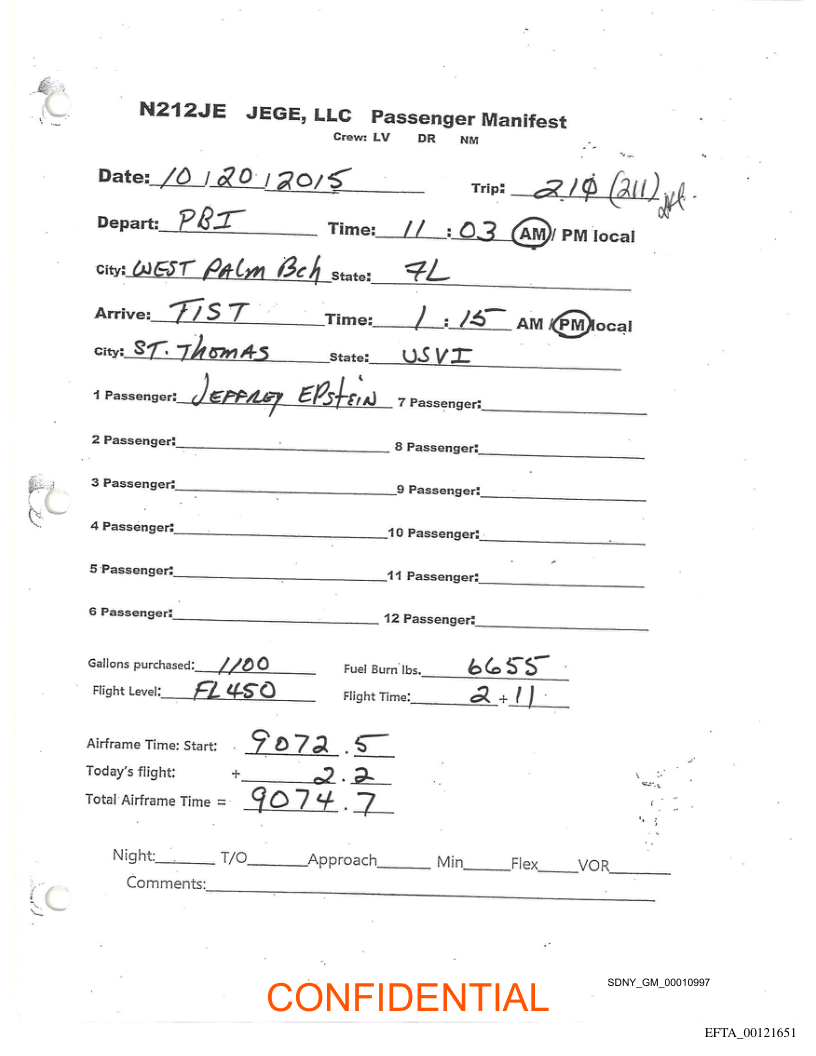 N212JE JEGE, LLC Passenger Manifest
Crew: LV DR NM
Date: 10 / 20 / 2015 Trip: 210 (211)
Depart: PBI Time: 11 : 03 AM / PM local
City: WEST PALM BCH State: FL
Arrive: TIST Time: 1 : 15 AM / PM local
City: ST. THOMAS State: USVI
1 Passenger: JEFFREY EPSTEIN 7 Passenger:
2 Passenger: 8 Passenger:
3 Passenger: 9 Passenger:
4 Passenger: 10 Passenger:
5 Passenger: 11 Passenger:
6 Passenger: 12 Passenger:
Gallons purchased: 1100 Fuel Burn lbs. 6655
Flight Level: FL 450 Flight Time: 2 + 11
Airframe Time: Start: 9072.5
Today's flight: + 2.2
Total Airframe Time = 9074.7
Night: T/O Approach Min Flex VOR
Comments:
SDNY_GM_00010997
CONFIDENTIAL
EFTA_00121651